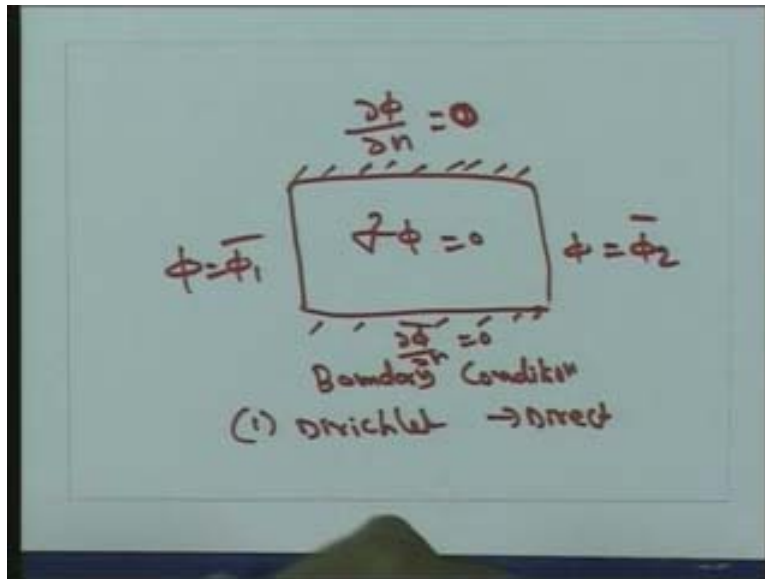 ∂ϕ/∂n = 0
ϕ = ϕ̄₁
∇²ϕ = 0
ϕ = ϕ̄₂
∂ϕ/∂n = 0
Boundary Condition
(1) Dirichlet → Direct